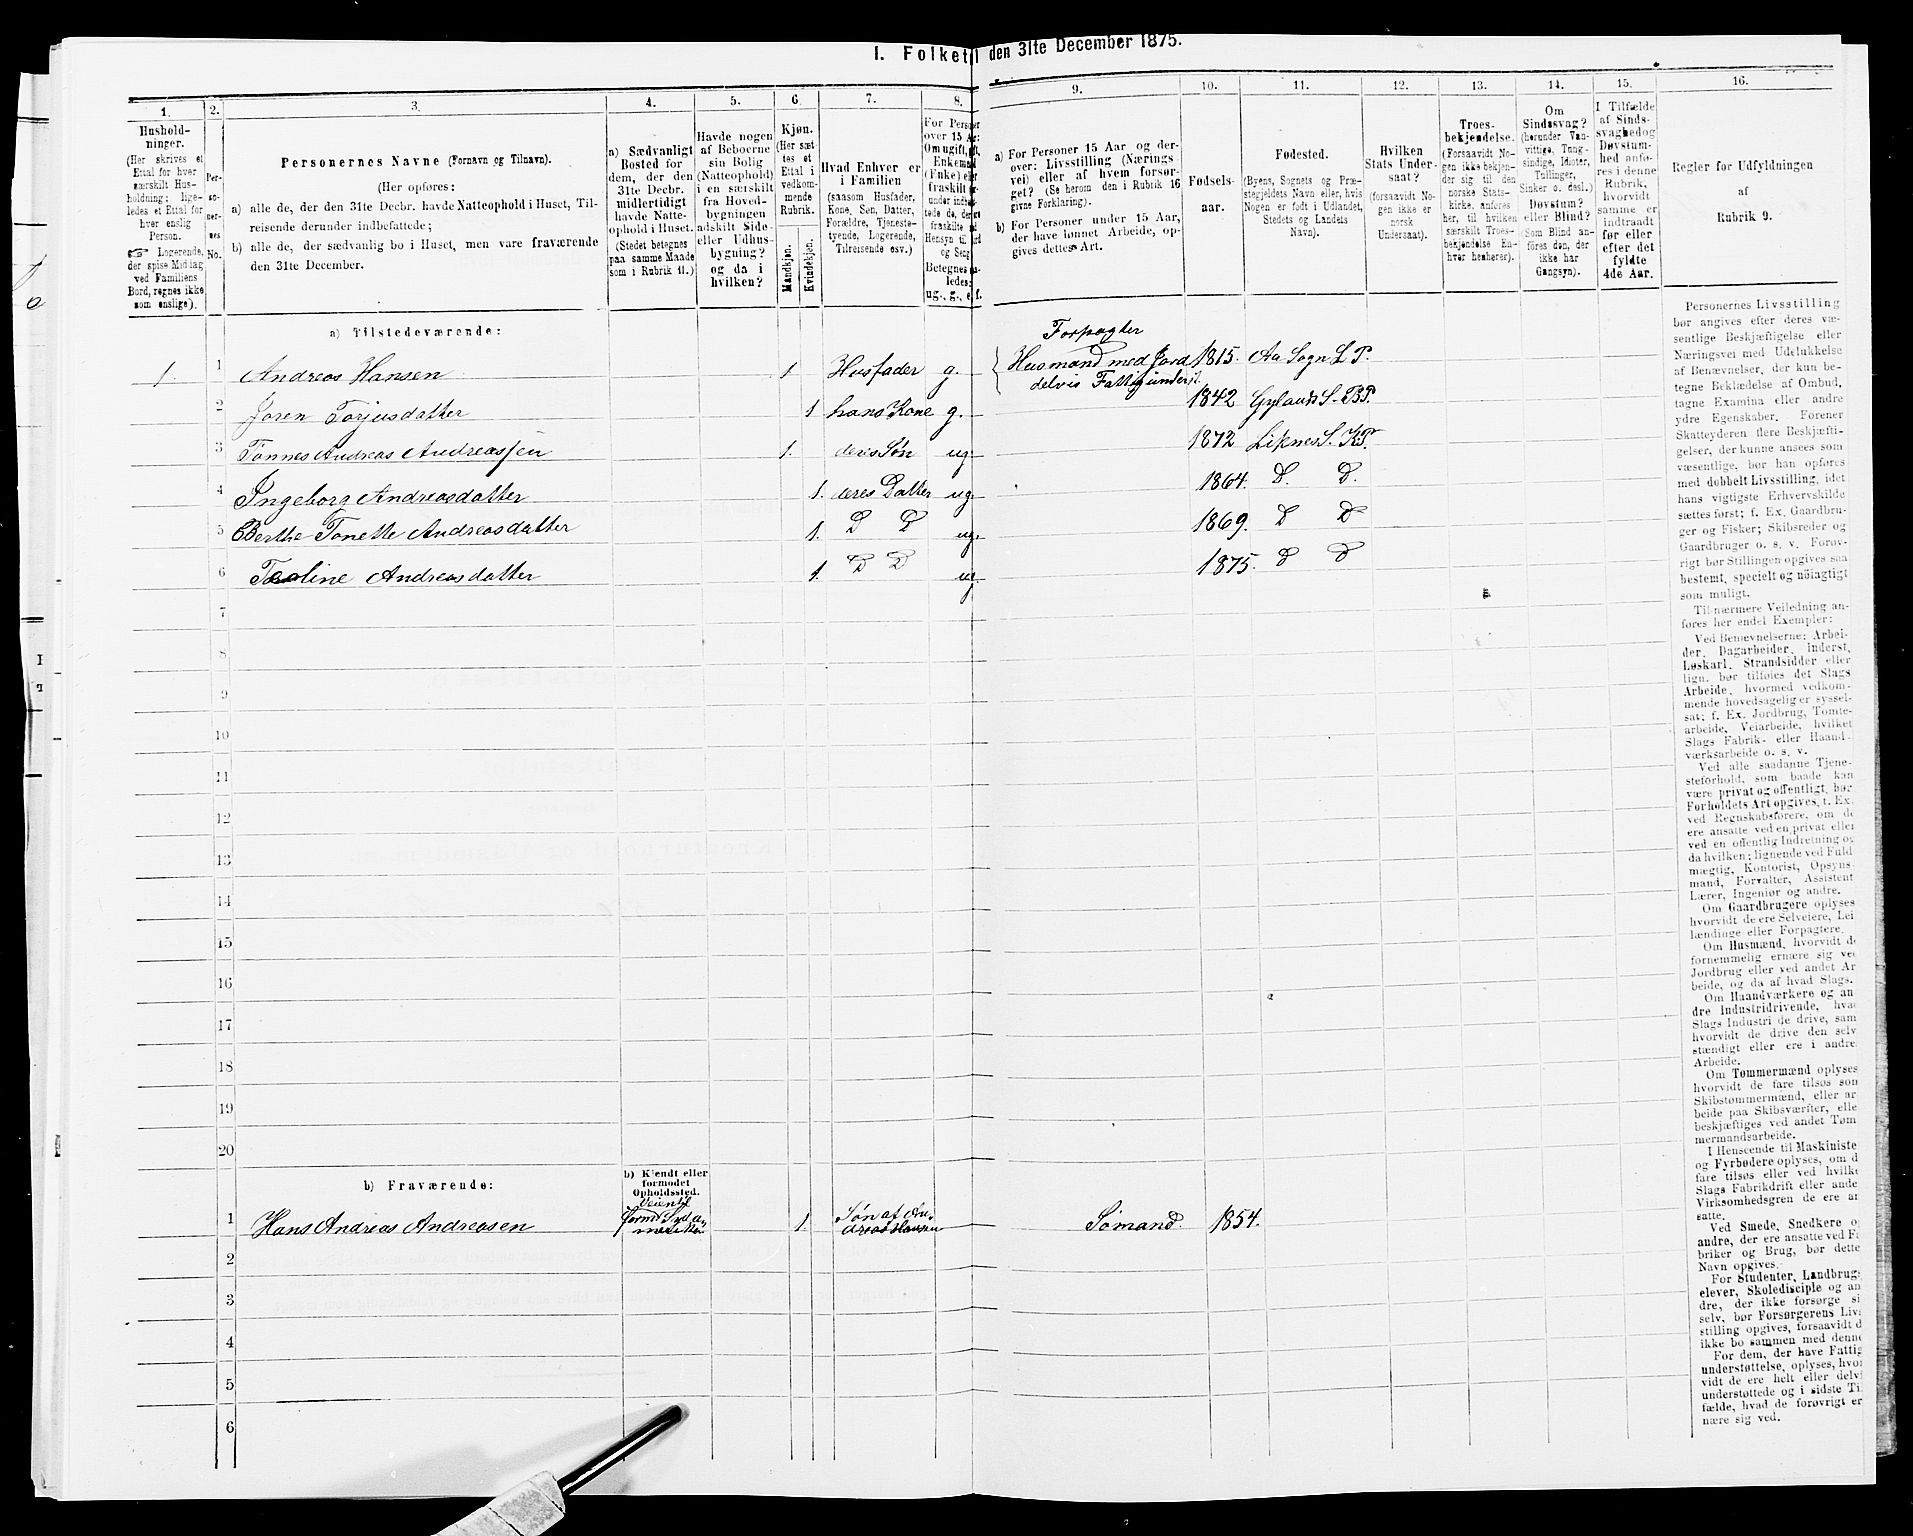 I. Folket den 31te December 1875.
1. 2. 3. 4. 5. 6. 7. 8. 9. 10. 11. 12. 13. 14. 15. 16.
Hushold-
ninger.
(Her skrives et
Ettal for hver
særskilt Hus-
holdning; lige-
ledes et Ettal for
hver enslig
Person.
Logerende,
der spise Middag
ved Familiens
Bord, regnes ikke
som enslige).
Per-
so-
ner-
nes
No.
Personernes Navne (Fornavn og Tilnavn).
(Her opføres:
a) alle de, der den 31te Decbr. havde Natteophold i Huset, Til-
reisende derunder indbefattede;
b) alle de, der sædvanlig bo i Huset, men vare fraværende
den 31te December.
a) Sædvanligt
Bosted for
dem, der den
31te Decbr.
midlertidigt
havde Natte-
ophold i Huset.
(Stedet betegnes
paa samme Maade
som i Rubrik 11.)
Havde nogen
af Beboerne
sin Bolig
(Natteophold)
i en særskilt
fra Hoved-
bygningen
adskilt Side-
eller Udhus-
bygning?
og da i
hvilken?
Kjøn.
(Her sæt-
tes et
Ettal i
vedkom-
mende
Rubrik.
Mandkjøn.
Kvindekjøn.
Hvad Enhver er
i Familien
(saasom Husfader,
Kone, Søn, Datter,
Forældre, Tjeneste-
tyende, Logerende,
Tilreisende osv.)
For Personer
over 15 Aar:
Om ugift, gift,
Enkemand
(Enke) eller
fraskilt
ug., g., e, f.
a) For Personer 15 Aar og der-
over: Livsstilling (Nærings-
vei) eller af hvem forsør-
get? (Se herom den i Rubrik 16
givne Forklaring).
b) For Personer under 15 Aar,
der have lønnet Arbeide, op-
gives dettes Art.
Fødsels-
aar.
Fødested.
(Byens, Sognets og Præ-
stegjeldets Navn eller, hvis
Nogen er født i Udlandet,
Stedets og Landets
Navn).
Hvilken
Stats Under-
saat?
(forsaavidt No-
gen ikke er
norsk
Undersaat).
Troes-
bekjendelse.
(Forsaavidt No-
gen ikke bekjen-
der sig til den
norske Stats-
kirke, anføres
her, til hvilken
særskilt Troes-
bekjendelse En-
hver henhører).
Om
Sindssvag?
(herunder Van-
vittige, Tung-
sindige, Idioter,
Tullinger,
Sinker o. desl.)
Døvstum?
eller Blind?
(Som Blind an-
føres den, der
ikke har
Gangsyn).
I Tilfælde
af Sinds-
svaghed og
Døvstum-
hed anfø-
res i denne
Rubrik,
hvorvidt
samme er
indtraadt
før eller
efter det
fyldte
4de Aar.
Regler for Udfyldningen
af
Rubrik 9.
a) Tilstedeværende:
Forpagter
1 1 Andreas Hansen 1 Husfader g. Husmand med Jord 1815. Aa Sogn L P.
delvis Fattigunderst.
2 Joren Torjusdatter 1 hans Kone g. 1842 Gylands S. BP.
3 Tønnes Andreas Andreassen 1. deres Søn ug. 1872 Liknes S. KP.
4 Ingeborg Andreasdatter 1. deres Datter ug. 1864. D. D.
5 Berthe Tonette Andreasdatter 1. D D ug. 1869. D D
6 Teoline Andreasdatter 1. D D ug. 1875. D D
7
8
9
10
11
12
13
14
15
16
17
18
19
20
b) Fraværende:
b) Kjendt eller
formodet
Opholdssted.
1 Hans Andreas Andreasen 1. Søn af An-
dreas Hansen Sømand 1854.
2
3
4
5
6
Personernes Livsstilling
bør angives efter deres væ-
sentlige Beskjæftigelse eller
Næringsvei med Udelukkelse
af Benævnelser, der kun be-
tegne Beklædelse af Ombud,
tagne Examina eller andre
ydre Egenskaber. Forener
Skatteyderen flere Beskjæfti-
gelser, der kunne ansees som
væsentlige, bør han opføres
med dobbelt Livsstilling, idet
hans vigtigste Erhvervskilde
sættes først; f. Ex. Gaardbru-
ger og Fisker; Skibsreder og
Gaardbruger o. s. v. Forøv-
rigt bør Stillingen opgives saa
bestemt, specielt og nöiagtigt
som muligt.
Til nærmere Veiledning an-
føres her endel Exempler:
Ved Benævnelserne: Arbei-
der, Dagarbeider, Inderst,
Løskarl, Strandsidder eller
lign. bør tilføies det Slags
Arbeide, hvormed vedkom-
mende hovedsagelig er syssel-
sat; f. Ex. Jordbrug, Tomte-
arbeide, Veiarbeide, hvilket
Slags Fabrik- eller Haand-
værksarbeide o. s. v.
Ved alle saadanne Tjene-
steforhold, som baade kan
være privat og offentligt, bør
Forholdets Art opgives, f. Ex.
ved Regnskabsførere, om de
ere ansatte ved en privat eller
ved en offentlig Indretning og
da hvilken; lignende ved Fuld-
mægtig, Kontorist, Opsyns-
mand, Forvalter, Assistent
Lærer, Ingeniør og andre.
Om Gaardbrugere oplyses
hvorvidt de ere Selveiere, Lei
lændinge eller Forpagtere.
Om Husmænd, hvorvidt de
fornemmelig ernære sig ve
Jordbrug eller ved andet Ar
beide, og da af hvad Slags.
Om Haandværkere og an
dre Industridrivende, hva
Slags Industri de drive, sam
hvorvidt de drive den selv
stændigt eller ere i andre
Arbeide.
Om Tømmermænd oplyses
hvorvidt de fare tilsøs som
Skibstømmermænd, eller ar
beide paa Skibsværfter, elle
beskjæftiges ved andet Tøm
mermandsarbeide.
I Henseende til Maskiniste
og Fyrbødere oplyses, om d
fare tilsøs eller ved hvilke
Slags Fabrikdrift eller ande
Virksomhedsgren de ere an
satte.
Ved Smede, Snedkere o
andre, der ere ansatte ved Fa
briker og Brug, bør dette
Navn opgives.
For Studenter, Landbrugs
elever, Skoledisciple og an
dre, der ikke forsørge si
selv, bør Forsørgerens Liv
stilling opgives, forsaavidt d
ikke bo sammen med denne
For dem, der have Fattig
understøttelse, oplyses, hvor
vidt de ere helt eller delvi
understøttede og i sidste Ti
fælde, hvad de forøvrigt er
nære sig ved.